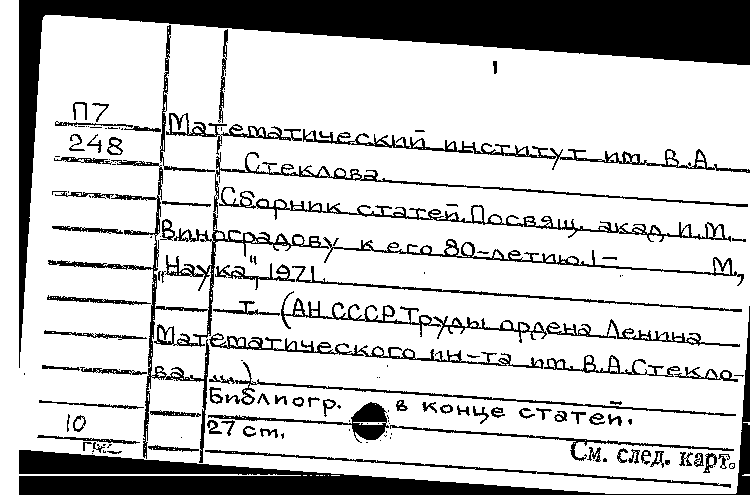 1
П7
248
Математический институт им. В.А.
Стеклова.
Сборник статей. Посвящ. акад. И.М.
Виноградову к его 80-летию. 1- М.,
"Наука", 1971.
т. (АН СССР. Труды ордена Ленина
Математического ин-та им. В.А. Стекло-
ва. ...).
Библиогр. в конце статей.
10
27 ст.
См. след. карт.